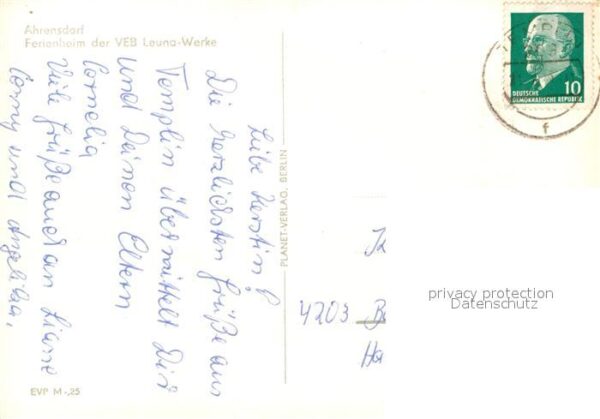 Ahrensdorf
Ferienheim der VEB Leuna-Werke
Liebe Kerstin!
Die herzlichsten Grüße aus
Templin übermittelt Dir
und Deinen Eltern
Cornelia
Viele Grüße auch an Liane
Conny und Angelika,
EVP M -,25
PLANET-VERLAG, BERLIN
DEUTSCHE
DEMOKRATISCHE REPUBLIK
10
f
4203
privacy protection
Datenschutz